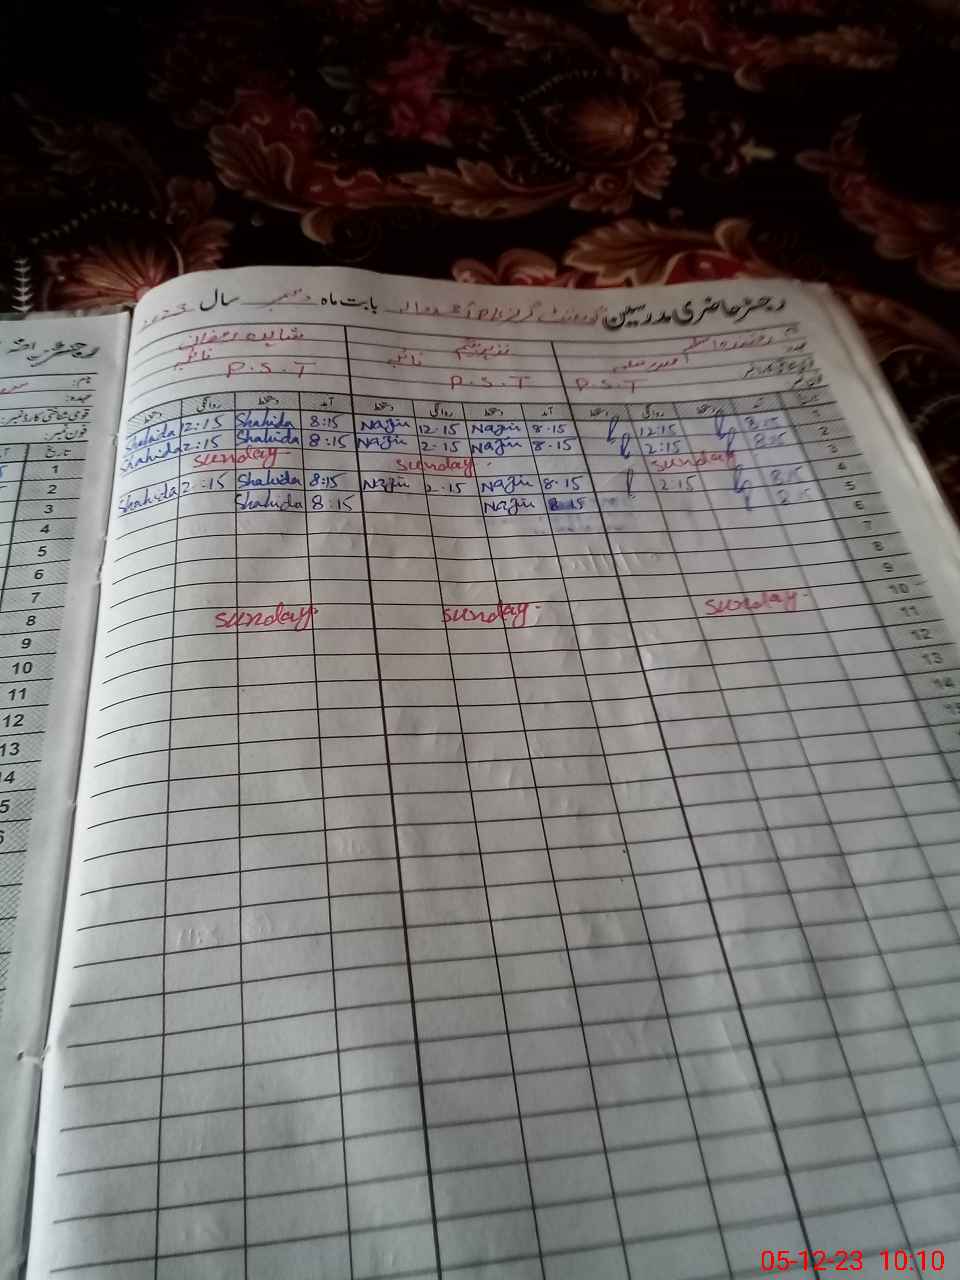 رجسٹر حاضری مدرسین
بابت ماہ دسمبر سال 2023
شاہدہ رمضان
نائب
P.S.T P.S.T P.S.T
دستخط روانگی دستخط آمد دستخط روانگی دستخط آمد دستخط روانگی دستخط آمد تاریخ
Shahida 2:15 Shahida 8:15 Nazir 12.15 Nazir 8.15 12:15 8.15 1
Shahida 2:15 Shahida 8:15 Nazir 2.15 Nazir 8.15 2:15 8.15 2
sunday sunday sunday 3
Shahida 2:15 Shahida 8:15 Nazir 2.15 Nazir 8.15 2:15 8.15 4
Shahida 8:15 Nazir 8.15 8.15 5
6
7
8
9
sunday sunday sunday 10
11
12
13
14
15
رجسٹر
نام:
عہدہ:
قومی شناختی کارڈ نمبر:
فون نمبر:
تاریخ
1
2
3
4
5
6
7
8
9
10
11
12
13
14
5
6
05-12-23 10:10